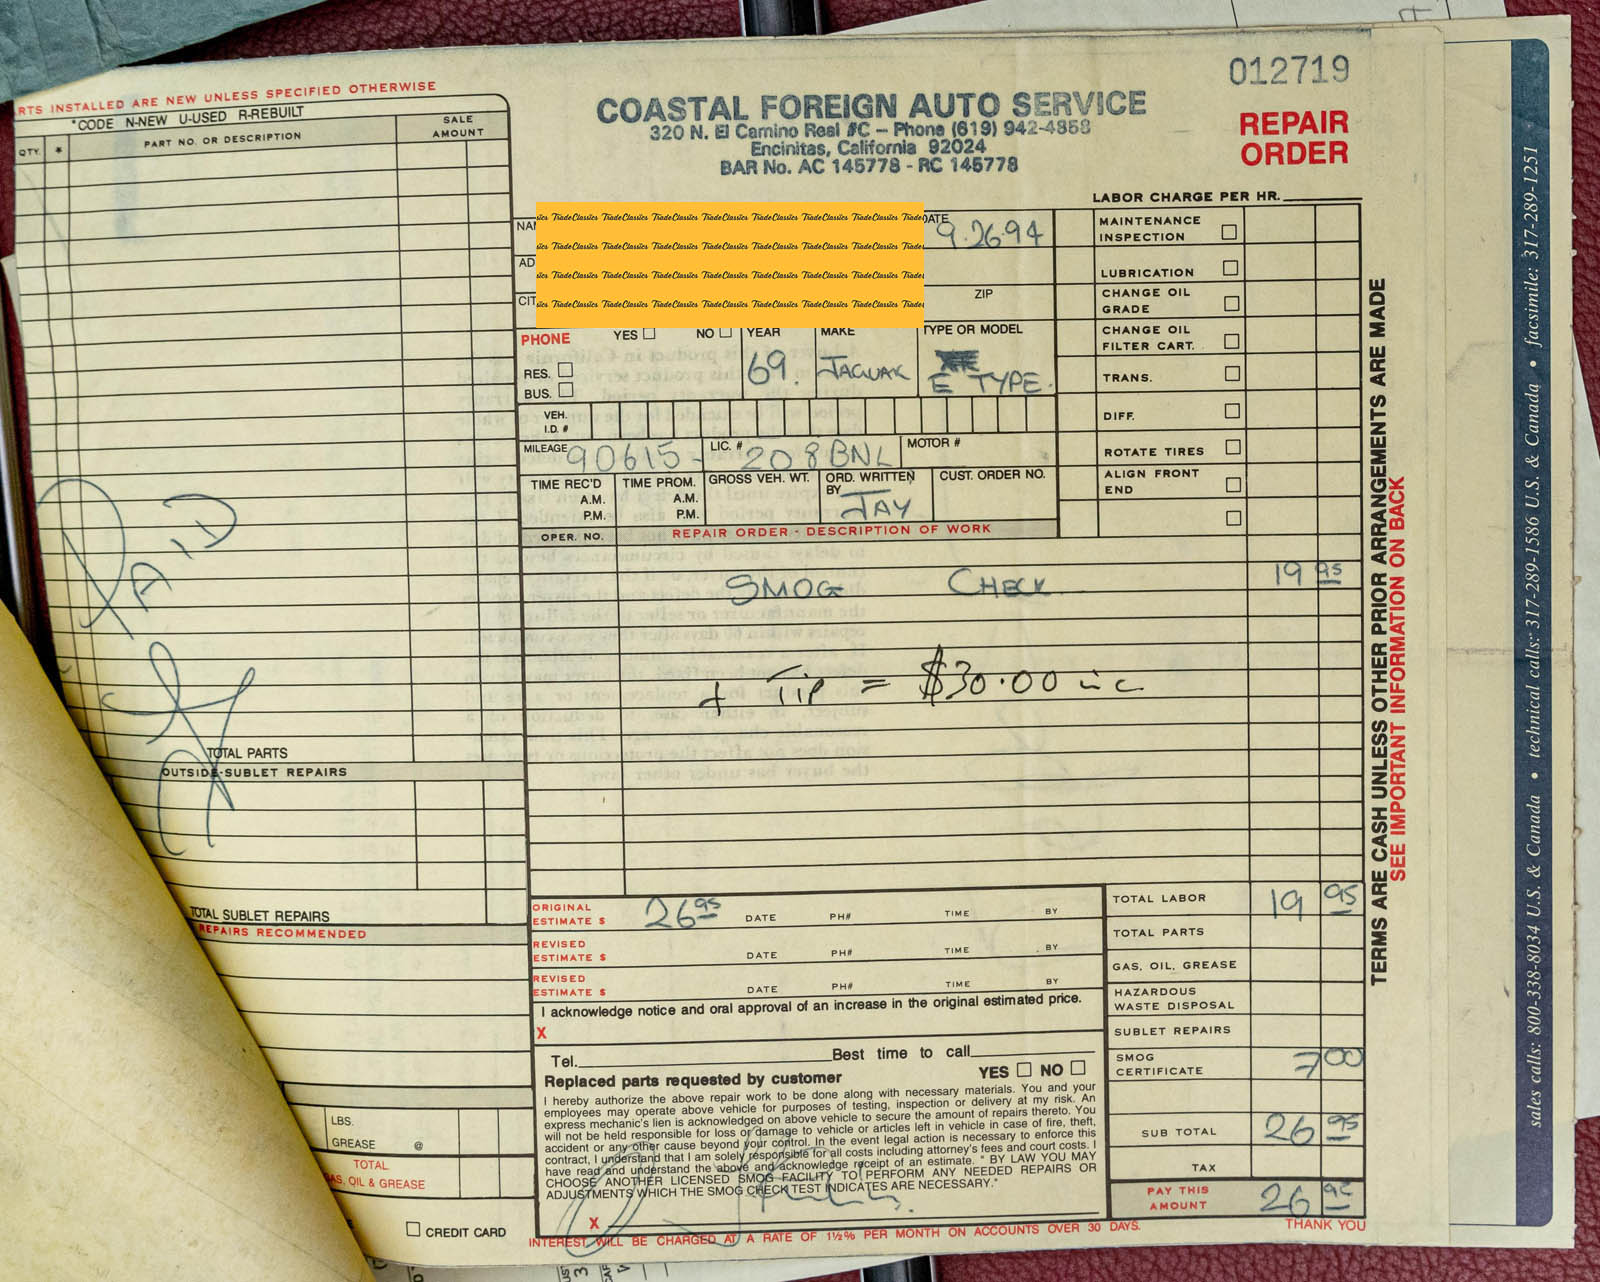 012719
REPAIR
ORDER
COASTAL FOREIGN AUTO SERVICE
320 N. El Camino Real #C – Phone (619) 942-4858
Encinitas, California 92024
BAR No. AC 145778 - RC 145778
RTS INSTALLED ARE NEW UNLESS SPECIFIED OTHERWISE
*CODE N-NEW U-USED R-REBUILT
QTY. * PART NO. OR DESCRIPTION SALE AMOUNT
PAID
TOTAL PARTS
OUTSIDE-SUBLET REPAIRS
TOTAL SUBLET REPAIRS
REPAIRS RECOMMENDED
LBS.
GREASE @
TOTAL
AS, OIL & GREASE
CREDIT CARD
NA
AD
CIT
TradeClassics TradeClassics TradeClassics TradeClassics TradeClassics TradeClassics TradeClassics
TradeClassics TradeClassics TradeClassics TradeClassics TradeClassics TradeClassics TradeClassics
TradeClassics TradeClassics TradeClassics TradeClassics TradeClassics TradeClassics TradeClassics
TradeClassics TradeClassics TradeClassics TradeClassics TradeClassics TradeClassics TradeClassics
DATE 9.26.94
ZIP
PHONE YES NO YEAR MAKE TYPE OR MODEL
RES.
BUS.
69. JAGUAR E TYPE.
VEH.
I.D. #
MILEAGE 90615- LIC. # 208BNL MOTOR #
TIME REC'D TIME PROM. GROSS VEH. WT. ORD. WRITTEN BY CUST. ORDER NO.
A.M. A.M.
P.M. P.M. JAY
OPER. NO. REPAIR ORDER - DESCRIPTION OF WORK
SMOG CHECK 19 95
+ Tip = $30.00 inc
LABOR CHARGE PER HR.
MAINTENANCE
INSPECTION
LUBRICATION
CHANGE OIL
GRADE
CHANGE OIL
FILTER CART.
TRANS.
DIFF.
ROTATE TIRES
ALIGN FRONT
END
ORIGINAL
ESTIMATE $ 26 95 DATE PH# TIME BY
REVISED
ESTIMATE $ DATE PH# TIME BY
REVISED
ESTIMATE $ DATE PH# TIME BY
I acknowledge notice and oral approval of an increase in the original estimated price.
X
Tel. Best time to call
YES NO
Replaced parts requested by customer
I hereby authorize the above repair work to be done along with necessary materials. You and your
employees may operate above vehicle for purposes of testing, inspection or delivery at my risk. An
express mechanic's lien is acknowledged on above vehicle to secure the amount of repairs thereto. You
will not be held responsible for loss or damage to vehicle or articles left in vehicle in case of fire, theft,
accident or any other cause beyond your control. In the event legal action is necessary to enforce this
contract, I understand that I am solely responsible for all costs including attorney's fees and court costs. I
have read and understand the above and acknowledge receipt of an estimate. " BY LAW YOU MAY
CHOOSE ANOTHER LICENSED SMOG FACILITY TO PERFORM ANY NEEDED REPAIRS OR
ADJUSTMENTS WHICH THE SMOG CHECK TEST INDICATES ARE NECESSARY."
X
INTEREST WILL BE CHARGED AT A RATE OF 1½% PER MONTH ON ACCOUNTS OVER 30 DAYS.
TOTAL LABOR 19 95
TOTAL PARTS
GAS, OIL, GREASE
HAZARDOUS
WASTE DISPOSAL
SUBLET REPAIRS
SMOG
CERTIFICATE 7 00
SUB TOTAL 26 95
TAX
PAY THIS
AMOUNT 26 95
THANK YOU
TERMS ARE CASH UNLESS OTHER PRIOR ARRANGEMENTS ARE MADE
SEE IMPORTANT INFORMATION ON BACK
sales calls: 800-338-8034 U.S. & Canada • technical calls: 317-289-1586 U.S. & Canada • facsimile: 317-289-1251